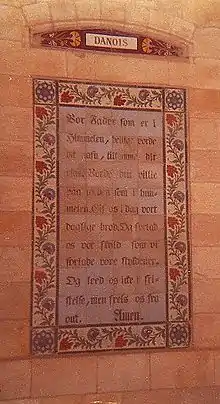 DANOIS
Vor Fader som er i
Himmelen, helligt vorde
dit nafn, tilkomme dit
rige. Vorde din villie
paa jorden som i him-
melen. Gif os i dag vort
daglige brod. Og forlad
os vor skyld som vi
forlade vore skyldener.
Og leed os icke i fri-
stelse, men frels os fra
ont. Amen.